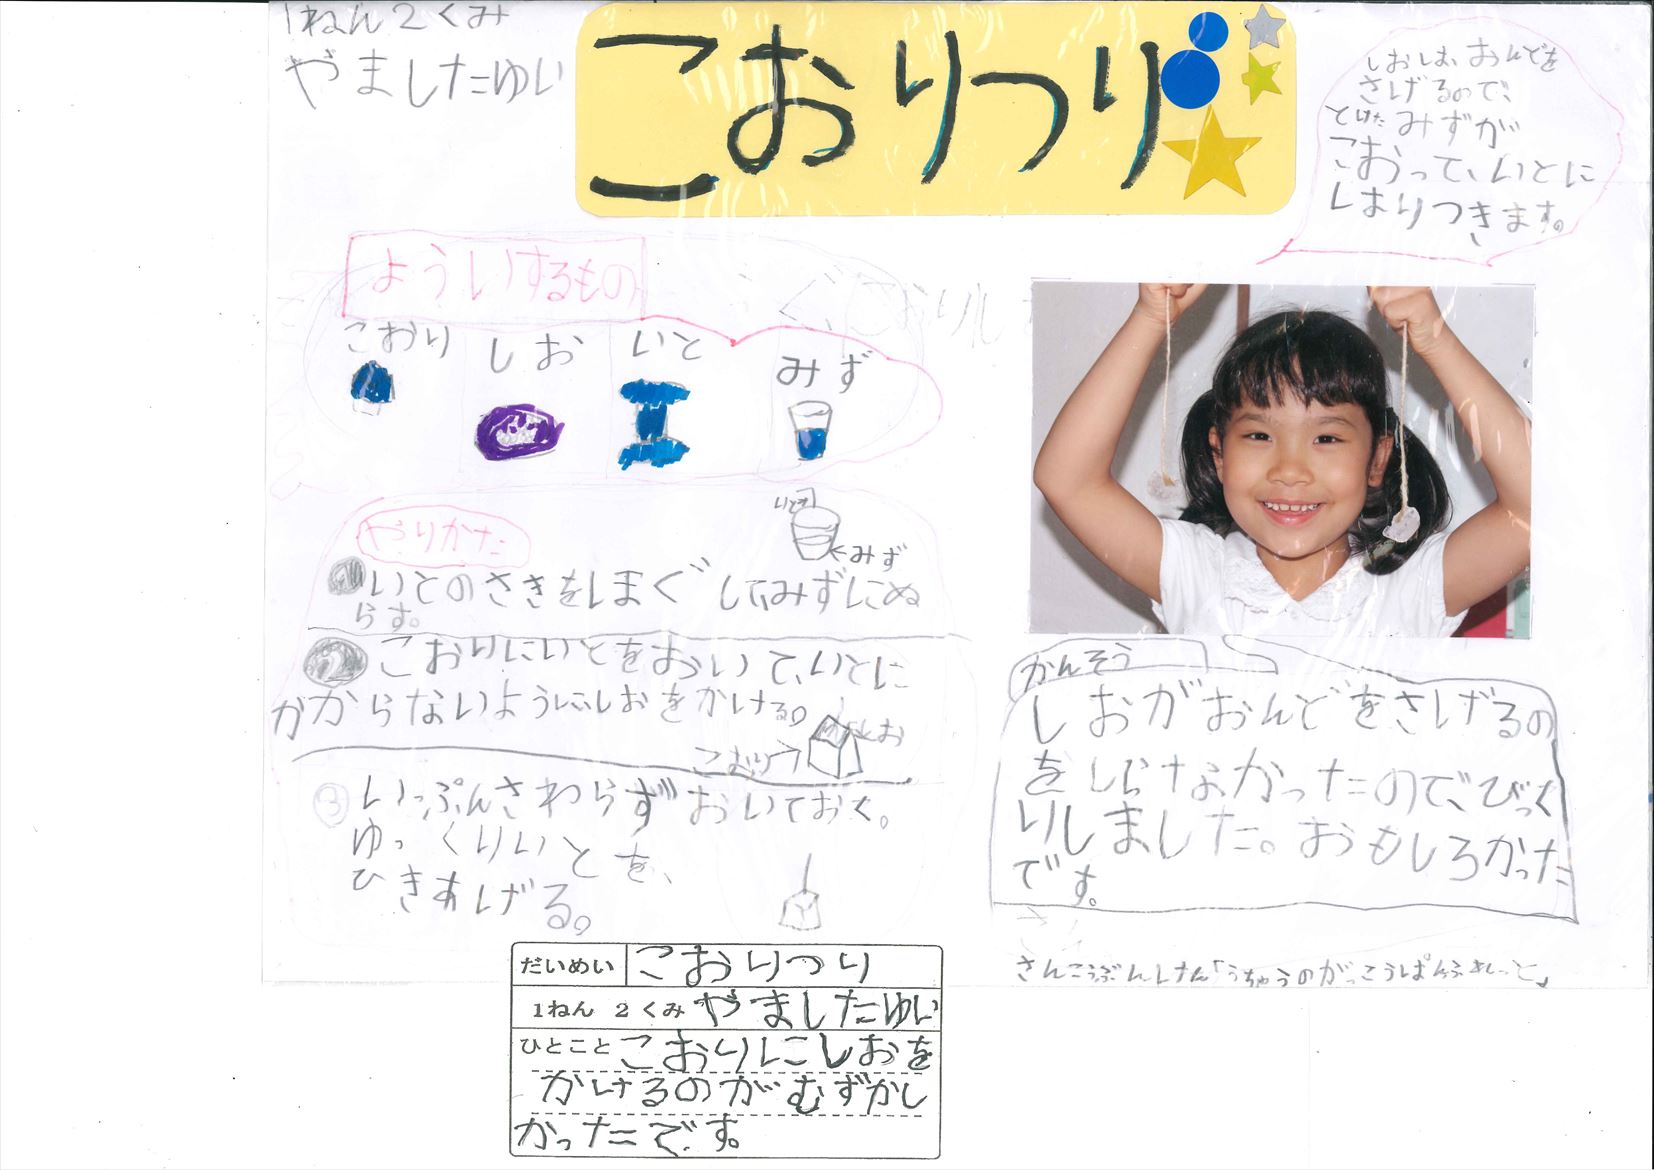 1ねん2くみ
やましたゆい
こおりつり
しおは、おんどを
さげるので、
とけたみずが
こおって、いとに
しまりつきます。
よういするもの
こおり
しお
いと
みず
やりかた
いと
←みず
いとのさきをしまぐしてみずにぬ
らす。
②こおりにいとをおいて、いとに
かからないようにしおをかける。
しお
こおり→
③いっぷんさわらずおいておく。
ゆっくりいとを、
ひきあげる。
かんそう
しおがおんどをさげるの
をしらなかったので、びっく
りしました。おもしろかった
です。
さんこうぶんけん「うちゅうのがっこうぱんふれっと」
だいめい こおりつり
1ねん 2くみ やましたゆい
ひとこと こおりにしおを
かけるのがむずかし
かったです。